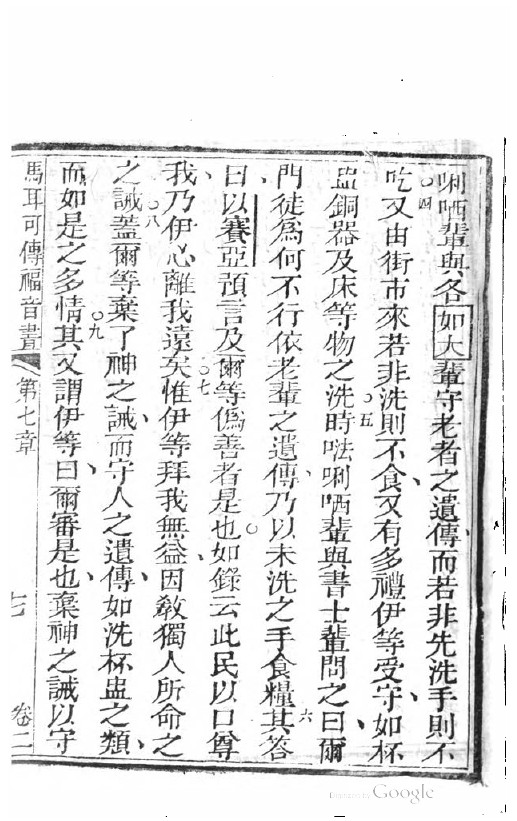 唎哂輩與各如大輩守老者之遺傳、而若非先洗手則不
吃○四又由街市來若非洗則不食、又有多禮伊等受守、如杯
盅銅器及床等物之洗○五時𠵽唎哂輩與書士輩問之曰、爾
門徒為何不行依老輩之遺傳、乃以未洗之手食糧○六其答
曰、以賽亞預言及爾等偽善者是也○如錄云此民以口尊
我、乃伊心離我遠矣○七惟伊等拜我無益、因教獨人所命之
之誡○八蓋爾等棄了神之誡、而守人之遺傳、如洗杯盅之類、
而如是之多情○九其又謂伊等曰、爾審是也、棄神之誡以守
馬耳可傳福音書 第七章 七 卷二
Digitized by Google